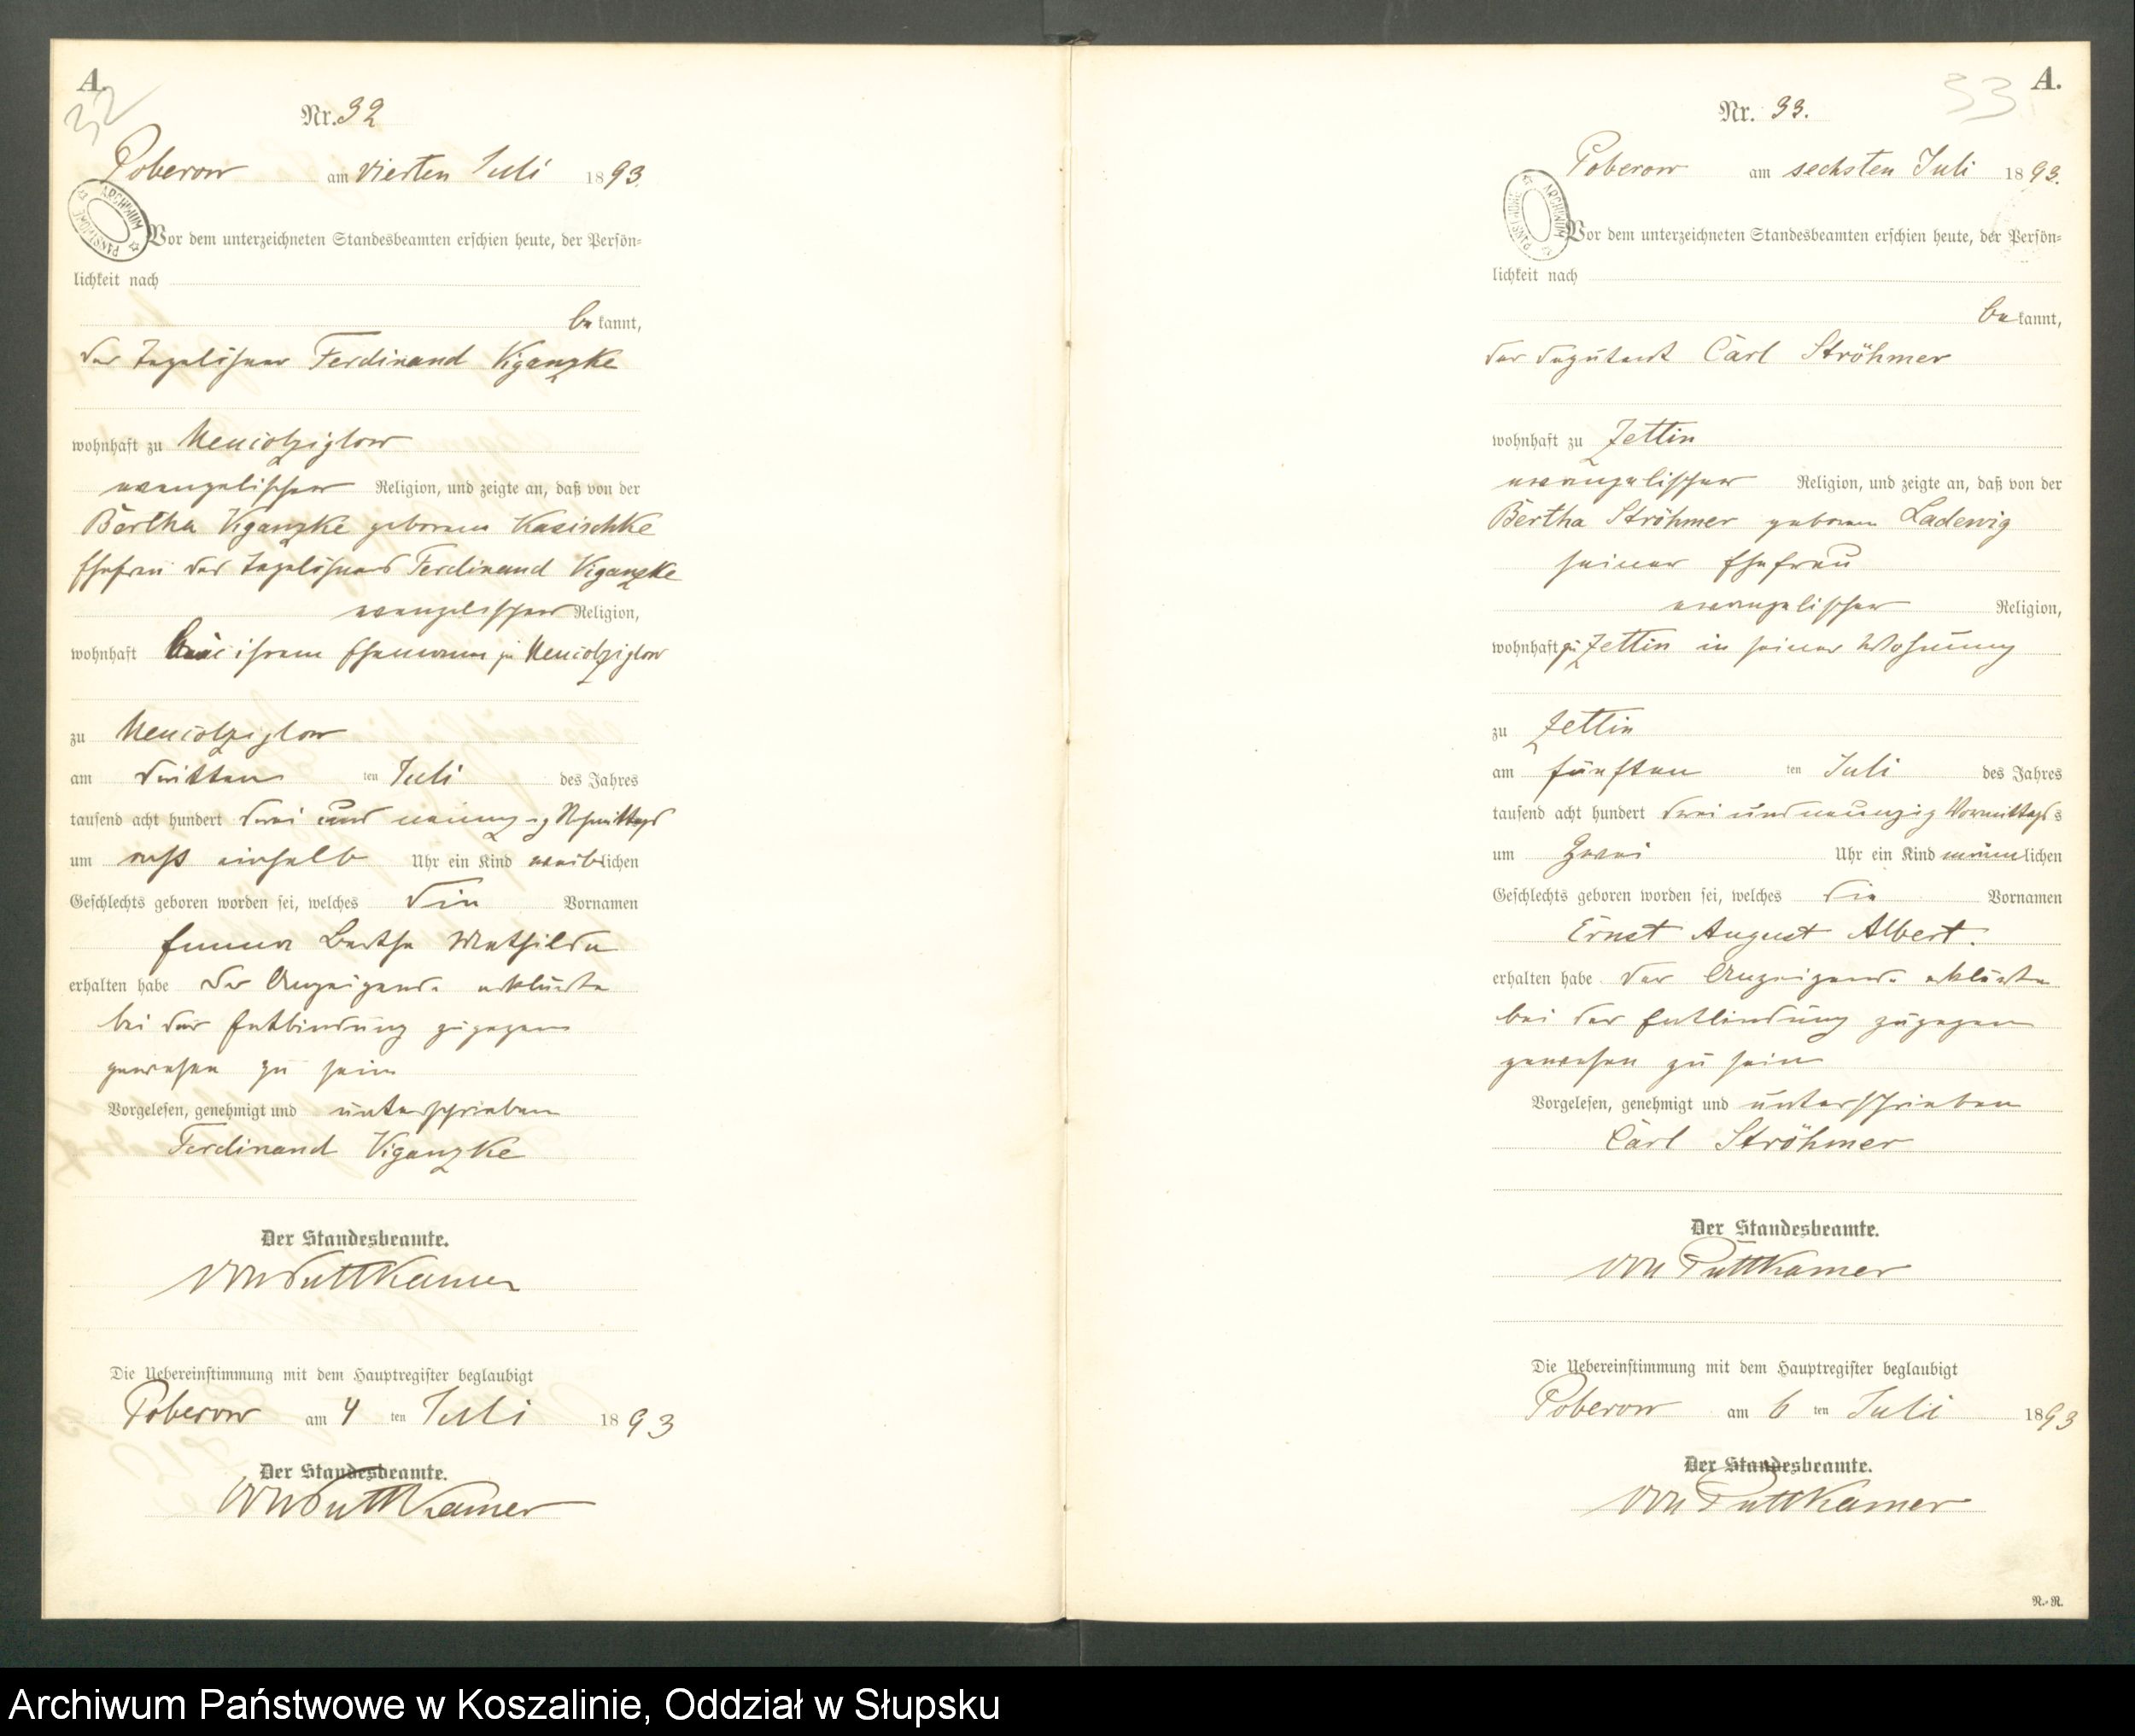 A.
32
Nr. 32
Poberow am vierten Juli 1893.
ARCHIWUM PAŃSTWOWE
Vor dem unterzeichneten Standesbeamten erschien heute, der Persön=
lichkeit nach
bekannt,
der Tagelöhner Ferdinand Viganzke
wohnhaft zu Neucolziglow
evangelischer Religion, und zeigte an, daß von der
Bertha Viganzke geborenen Kasischke
Ehefrau des Tagelöhners Ferdinand Viganzke
evangelischer Religion,
wohnhaft bei ihrem Ehemann zu Neucolziglow
zu Neucolziglow
am dritten ten Juli des Jahres
tausend acht hundert drei und neunzig Nachmittags
um acht einhalb Uhr ein Kind weiblichen
Geschlechts geboren worden sei, welches die Vornamen
Emma Bertha Mathilde
erhalten habe Der Anzeigende erklärte
bei der Entbindung zugegen
gewesen zu sein
Vorgelesen, genehmigt und unterschrieben
Ferdinand Viganzke
Der Standesbeamte.
von Puttkamer
Die Uebereinstimmung mit dem Hauptregister beglaubigt
Poberow am 4 ten Juli 1893
Der Standesbeamte.
von Puttkamer
A.
33
Nr. 33.
Poberow am sechsten Juli 1893.
ARCHIWUM PAŃSTWOWE
Vor dem unterzeichneten Standesbeamten erschien heute, der Persön=
lichkeit nach
bekannt,
der Deputant Carl Ströhmer
wohnhaft zu Zettin
evangelischer Religion, und zeigte an, daß von der
Bertha Ströhmer geborenen Ladewig
seiner Ehefrau
evangelischer Religion,
wohnhaft zu Zettin in seiner Wohnung
zu Zettin
am fünften ten Juli des Jahres
tausend acht hundert drei und neunzig Vormittags
um zwei Uhr ein Kind männlichen
Geschlechts geboren worden sei, welches die Vornamen
Ernst August Albert.
erhalten habe. Der Anzeigende erklärte
bei der Entbindung zugegen
gewesen zu sein
Vorgelesen, genehmigt und unterschrieben
Carl Ströhmer
Der Standesbeamte.
von Puttkamer
Die Uebereinstimmung mit dem Hauptregister beglaubigt
Poberow am 6 ten Juli 1893
Der Standesbeamte.
von Puttkamer
R.-R.
Archiwum Państwowe w Koszalinie, Oddział w Słupsku